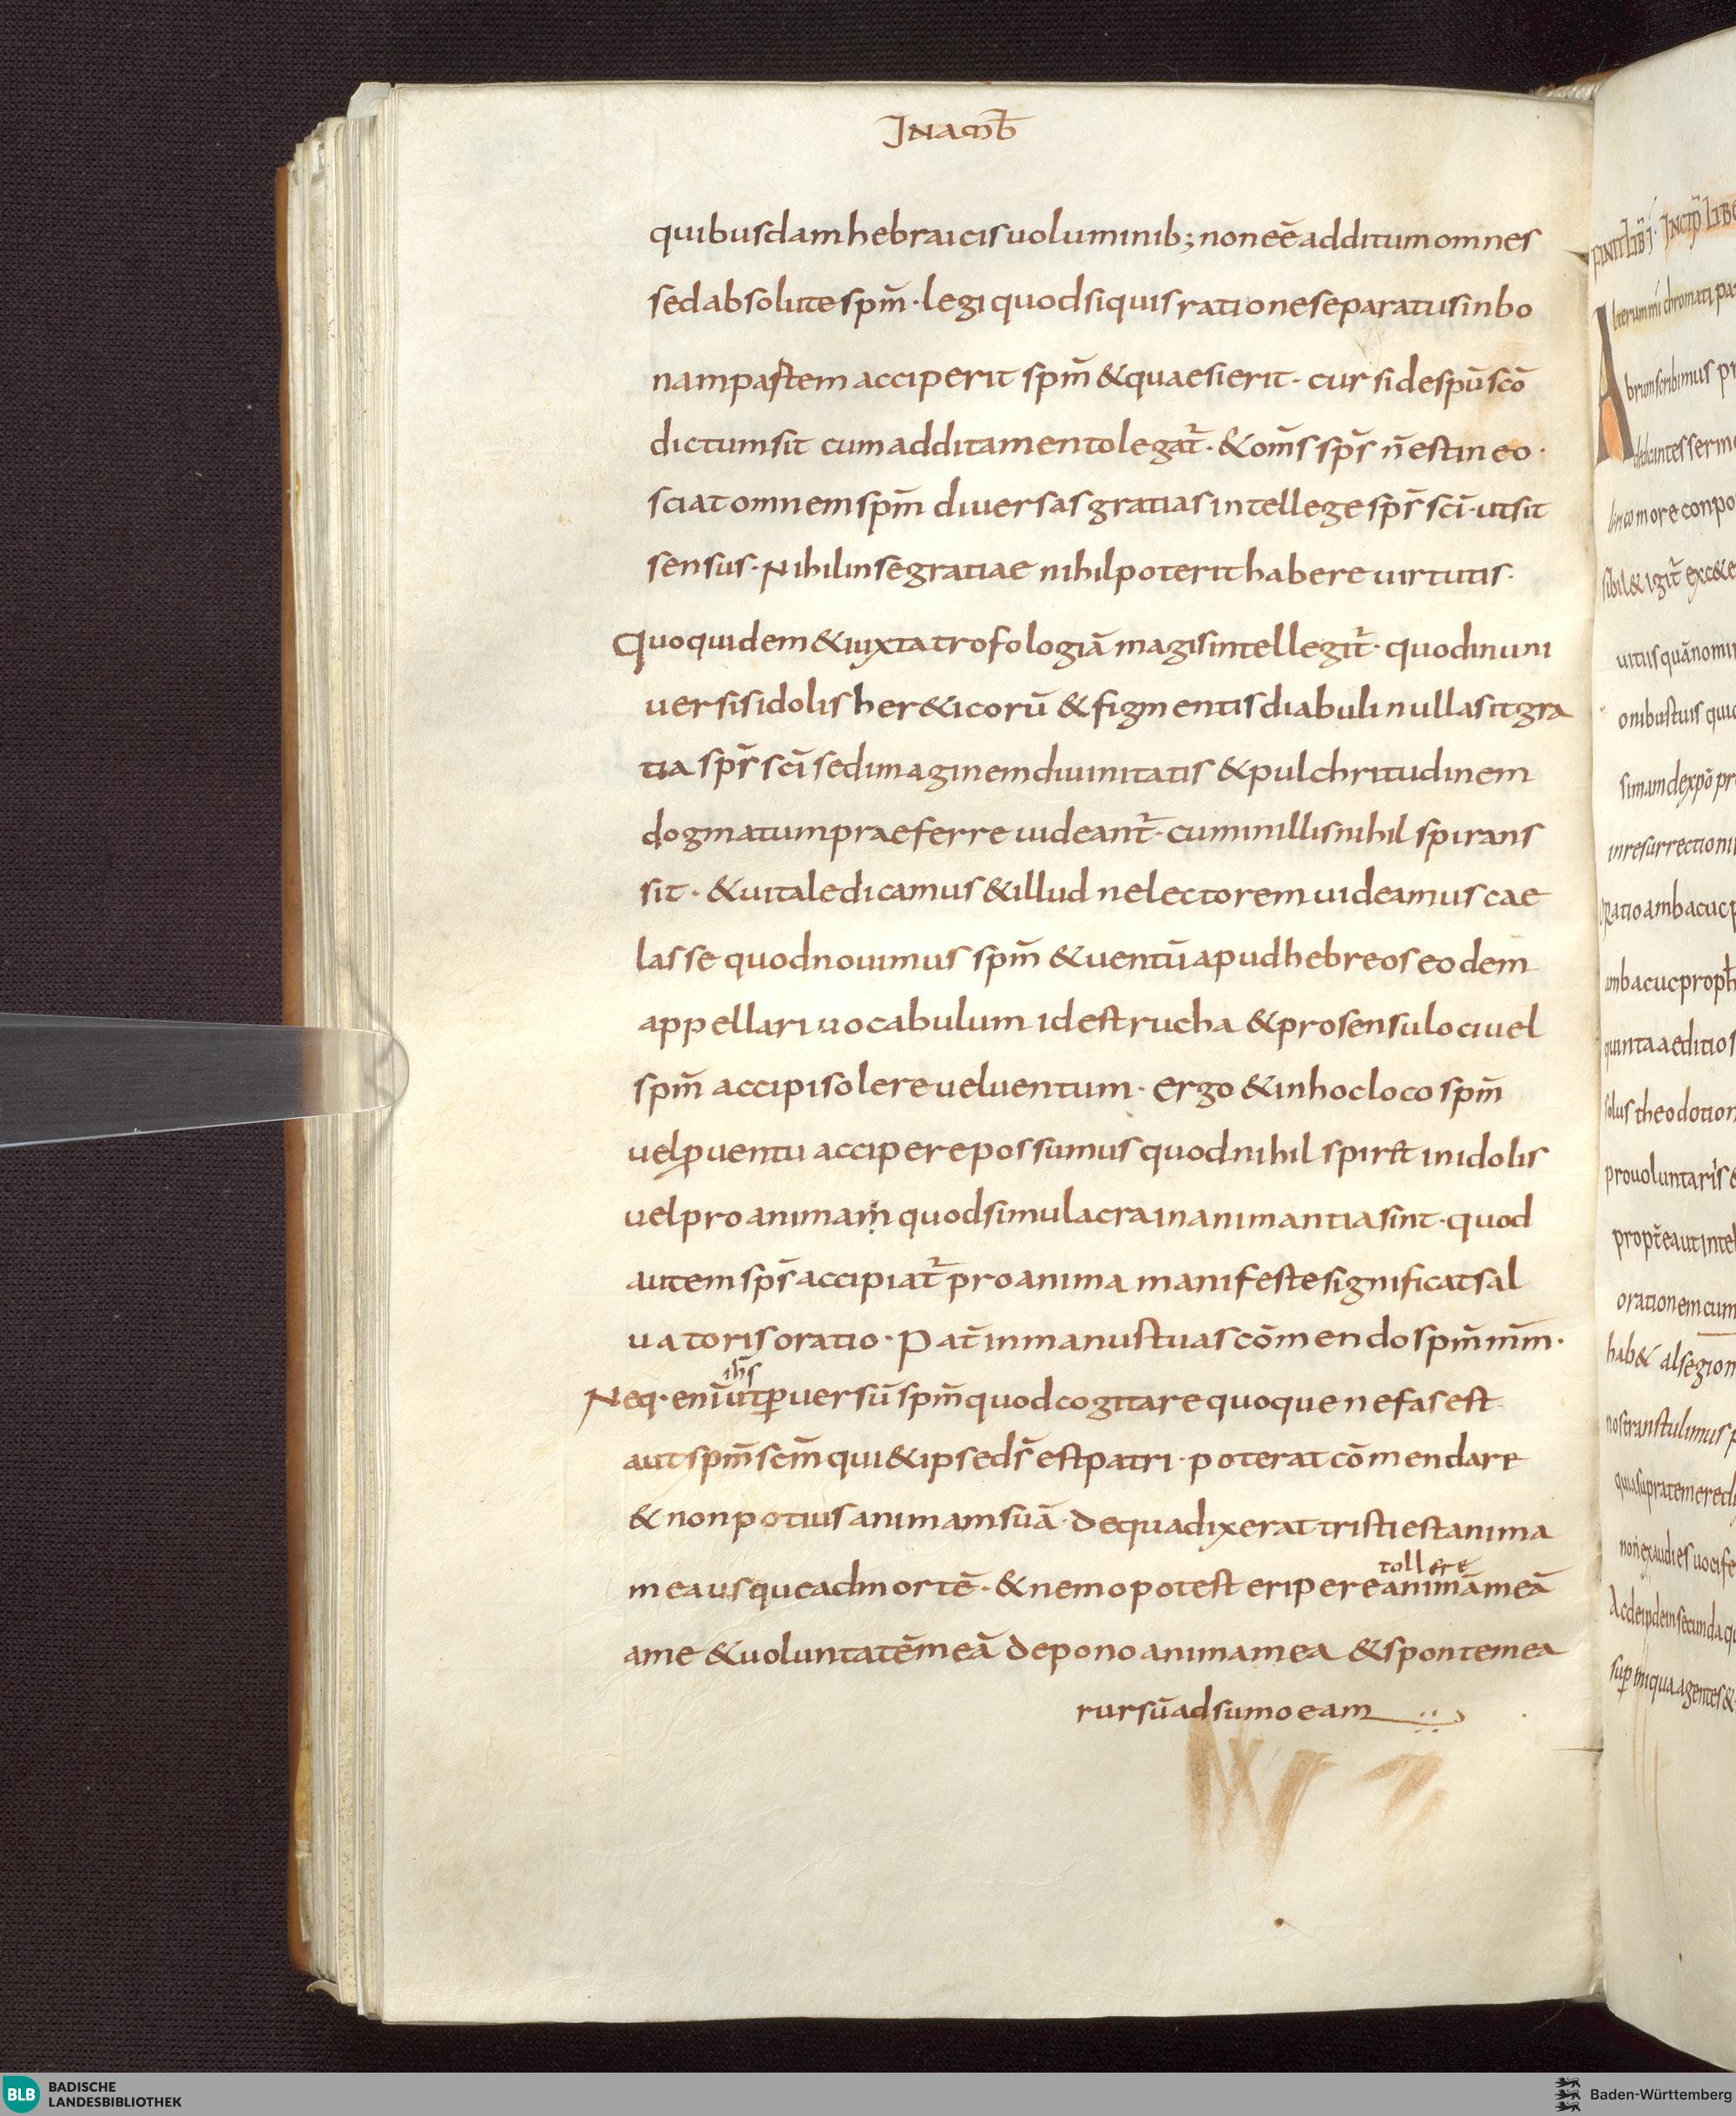 In amb̄
quibusdam hebraicis uoluminib; non eē additum omnes
sed absolute spm̄ · legi quod si quis ratione separatus in bo
nam partem acciperit spm̄ & quaesierit · cur si de spū scō
dictum sit cum additamento legat̄ · & om̄s sps̄ n̄ est in eo ·
sciat omnem spm̄ diuersas gratias intellege sps̄ sci̅ · ut sit
sensus · Nihil in se gratiae nihil poterit habere uirtutis ·
Quo quidem & iuxta trofologiā magis intellegit̄ · quod in uni
uersis idolis her&icorū & figmentis diabuli nulla sit gra
tia sps̄ sci̅ sed imaginem diuinitatis & pulchritudinem
dogmatum praeferre uideant̄ · cum in illis nihil spirans
sit · & uitale dicamus & illud ne lectorem uideamus cae
lasse quod nouimus spm̄ & uentū apud hebreos eodem
appellari uocabulum id est rucha & pro sensu loci uel
spm̄ accipi solere uel uentum · Ergo & in hoc loco spm̄
uel ꝓ uentu accipere possumus quod nihil spir&t in idolis
uel pro animam quod simulacra inanimantia sint · quod
autem sps̄ accipiat̄ pro anima manifeste significat sal
uatoris oratio · Pat̄ in manus tuas cōmendo spm̄ mm̄ ·
ih̄s
Neq · enī ut ꝑuersū spm̄ quod cogitare quoque nefas est
aut spm̄ scm̄ qui & ipse ds̄ est patri · poterat cōmendare
& non potius animam suā · De qua dixerat tristi est anima
mea usque ad mortē · & nemo potest eripere animā meā
tollere
a me & uoluntatē meā depono anima mea & sponte mea
rursū adsumo eam
FINIT LIB̄ I · INCIP̄ LIBE
ambacuc proph
quinta aeditio s
solus theodotion
pro uoluntaris
orationem cum
BLB BADISCHE
LANDESBIBLIOTHEK
Baden-Württemberg